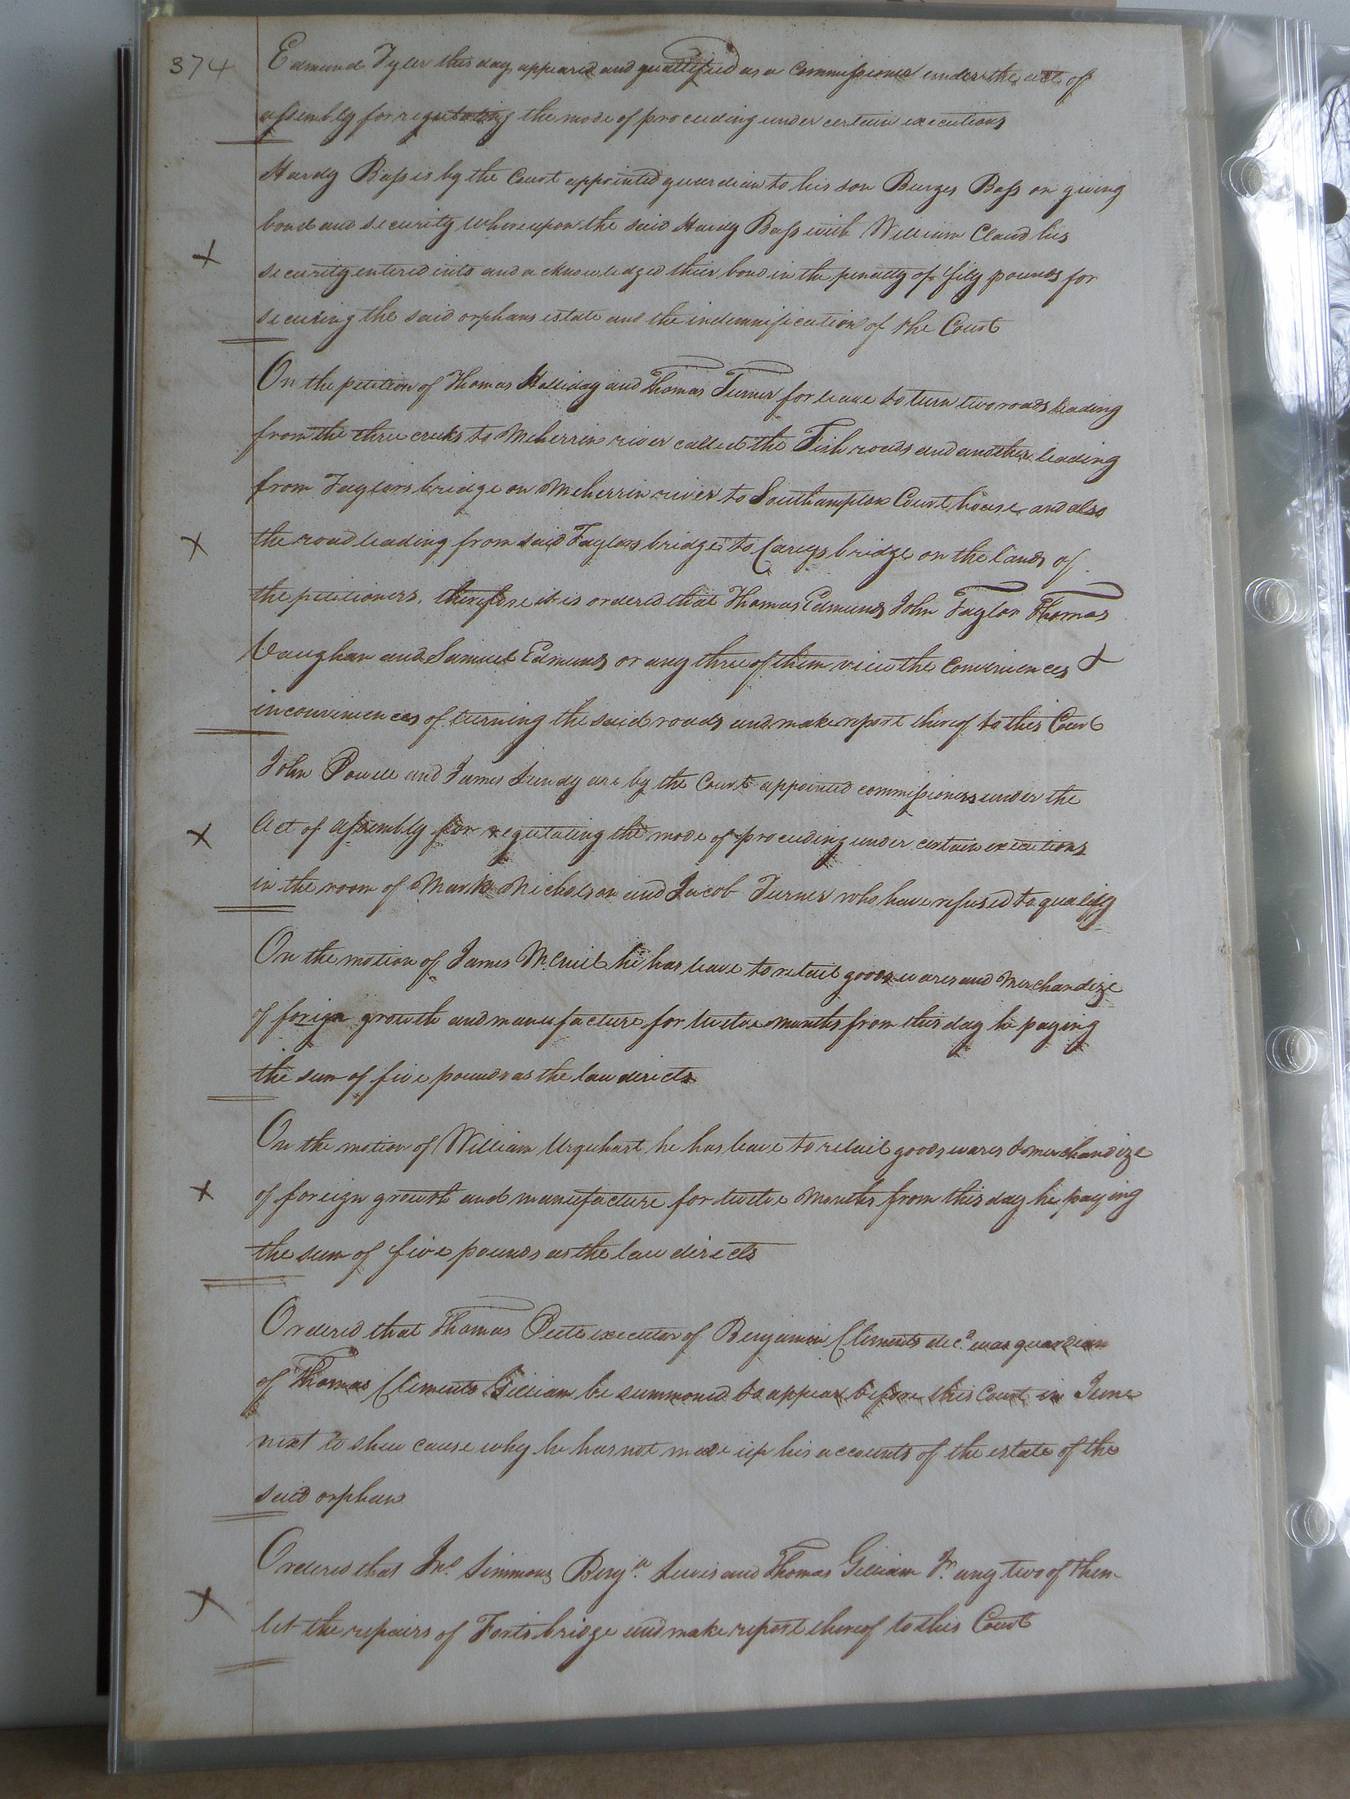 374
Edmund Tyler this day appeared and qualified as a Commissioner under the act of
assembly for regulating the mode of proceeding under certain executions
Hardy Bass is by the Court appointed guardian to his son Burges Bass on giving
bond and security Whereupon the said Hardy Bass with William Claud his
security entered into and acknowledged their bond in the penalty of fifty pounds for
securing the said orphans estate and the indemnification of the Court
On the petition of Thomas Holliday and Thomas Turner for leave to turn two roads leading
from the three creeks to Meherrin river called the Fish roads and another leading
from Taylors bridge on Meherrin river to Southampton Court house and also
the road leading from said Taylors bridge to Careys bridge on the lands of
the petitioners, therefore it is ordered that Thomas Edmunds John Taylor Thomas
Vaughan and Samuel Edmunds or any three of them view the conveniences &
inconveniences of turning the said roads and make report thereof to this Court
John Powell and James Lundy are by the Court appointed commissioners under the
Act of Assembly for regulating the mode of proceeding under certain executions
in the room of Mark Nicholson and Jacob Turner who have refused to qualify
On the motion of James he has leave to retail goods wares and Merchandize
of foreign growth and manufacture for twelve months from this day he paying
the sum of five pounds as the law directs
On the motion of William Urquhart he has leave to retail goods wares & merchandize
of foreign growth and manufacture for twelve months from this day he paying
the sum of five pounds as the law directs
Ordered that Thomas Peete executor of Benjamin Clements decd. was guardian
of Thomas Clements Gilliam be summoned to appear before this Court in June
next to shew cause why he has not made up his accounts of the estate of the
said orphan
Ordered that Jno. Simmons Benja. Lewis and Thomas Gilliam Jr. any two of them
let the repairs of Forts bridge and make report thereof to this Court